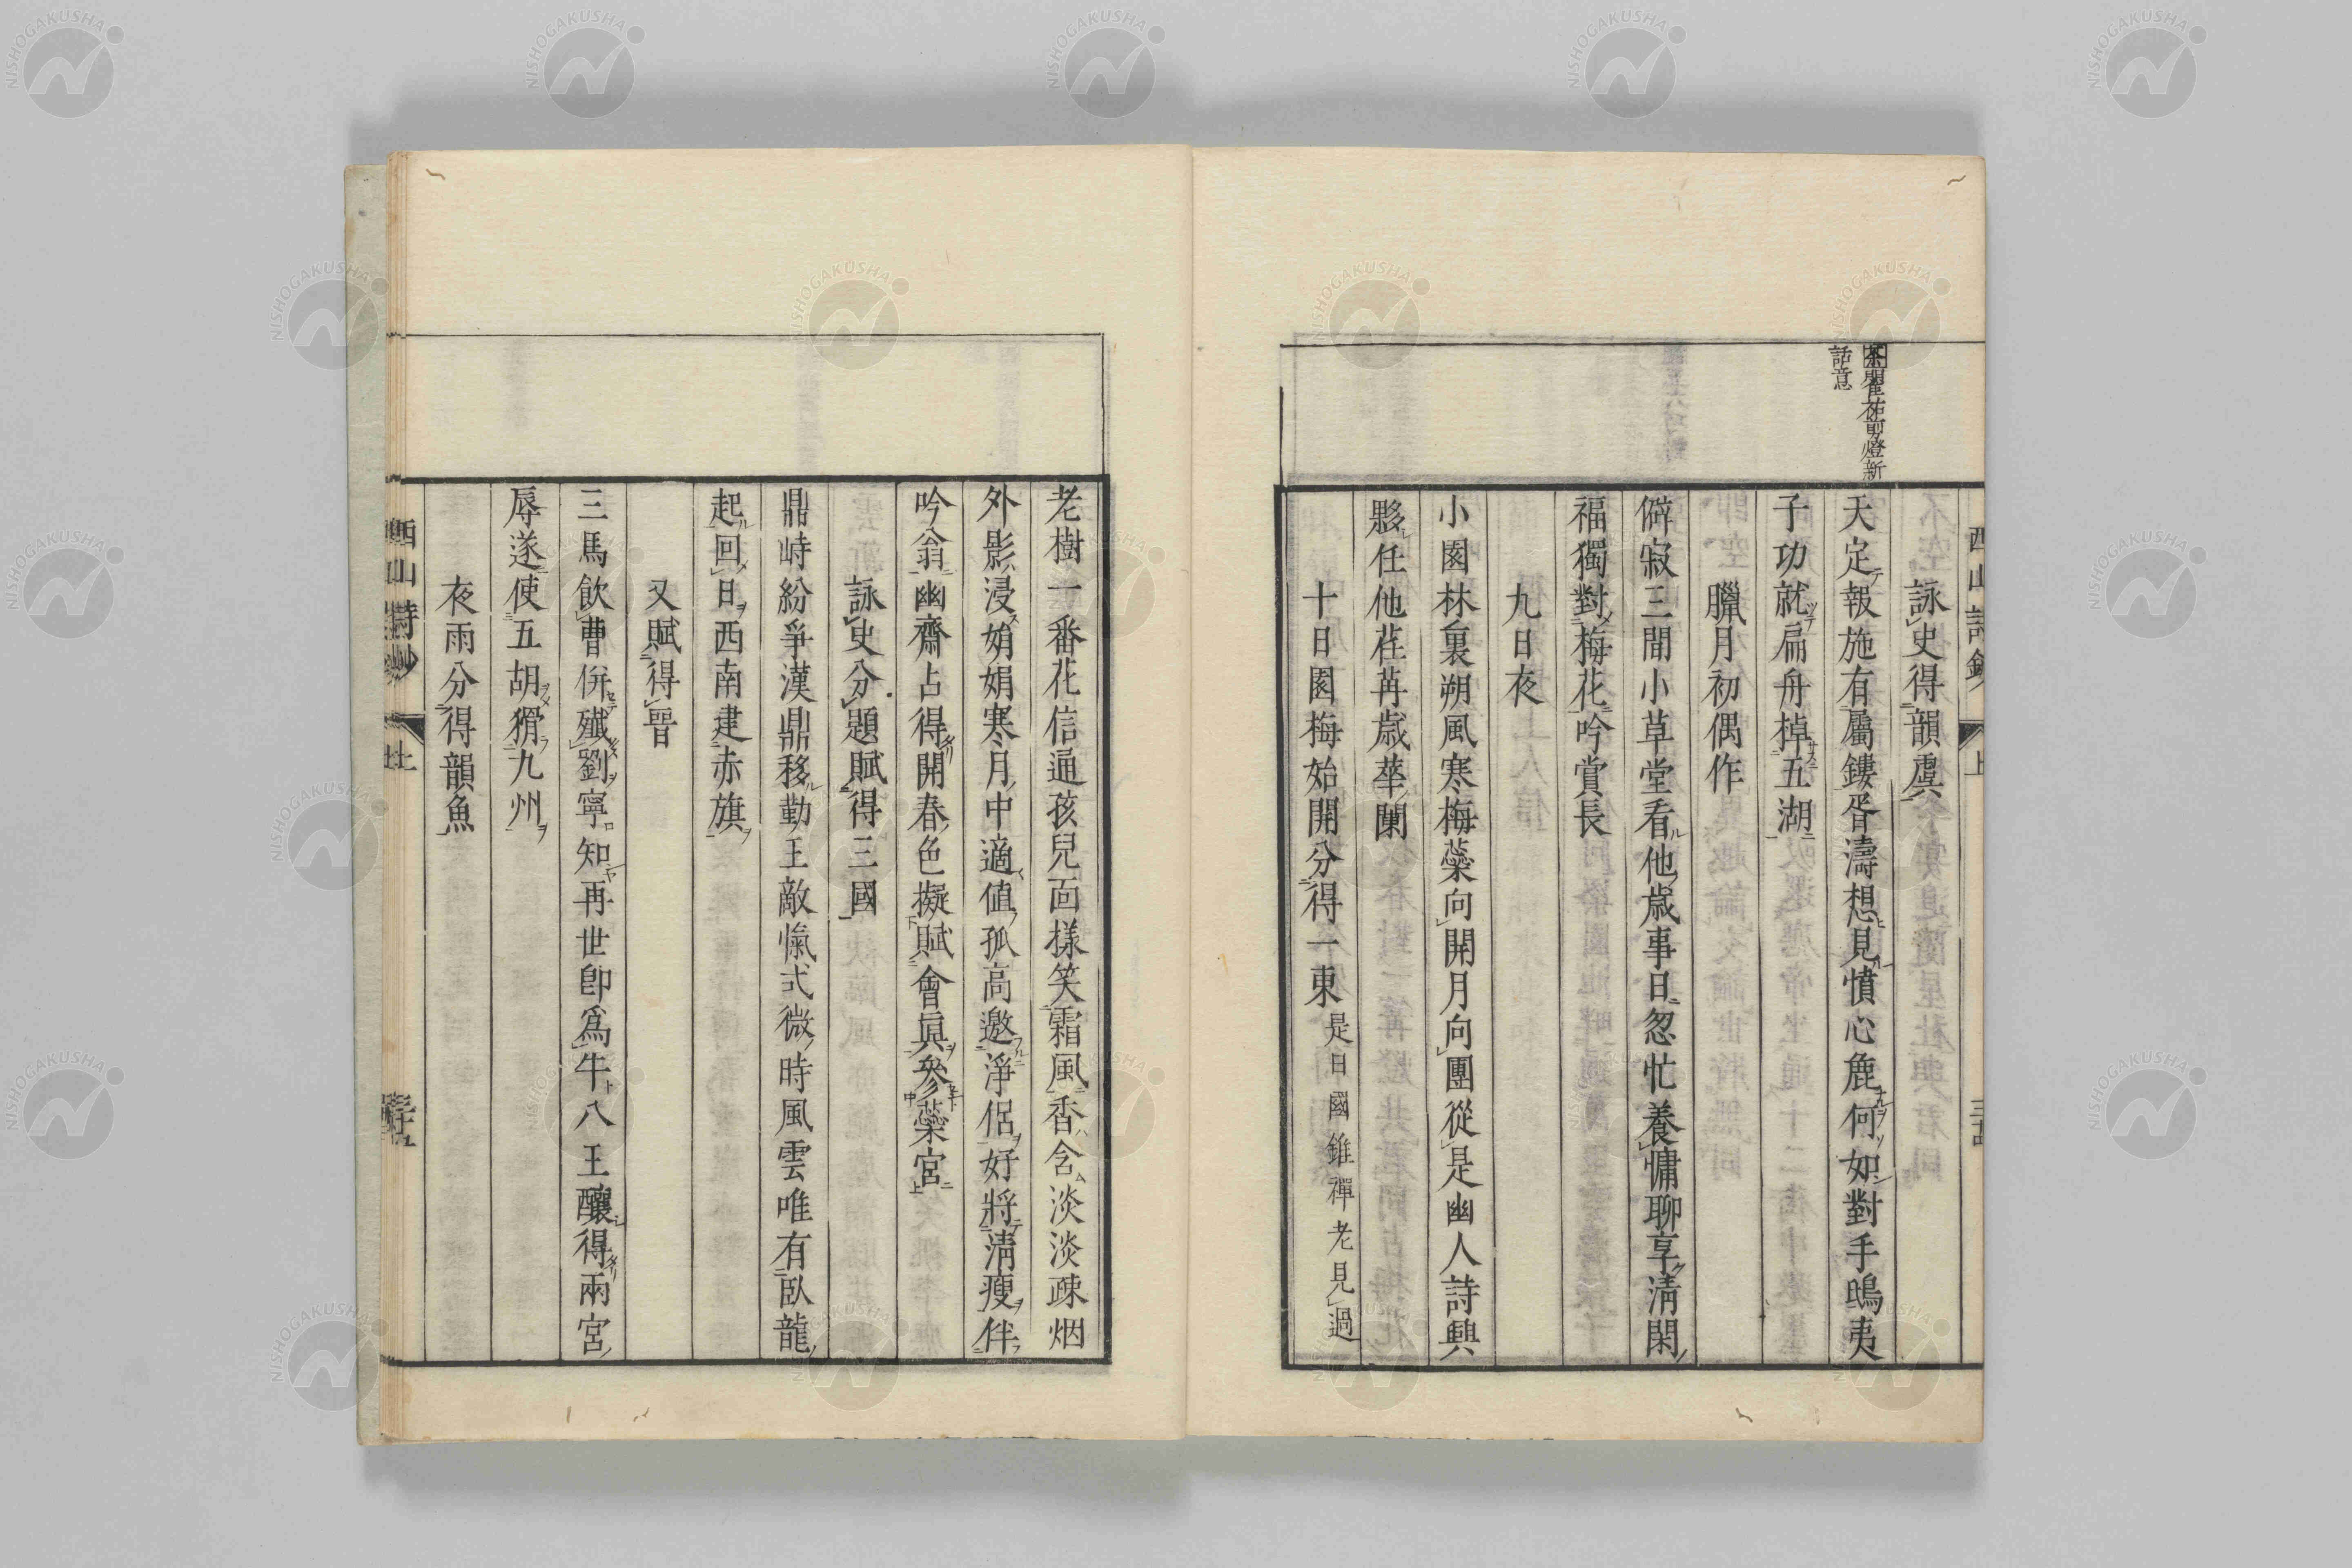 詠史得韻虞
天定報施有屬鏤胥濤想見憤心麁何如對手鴟夷
子功就扁舟棹五湖
臘月初偶作
僻寂三間小草堂看他歲事日忽忙養慵聊享清閑
福獨對梅花吟賞長
九日夜
小園林裏朔風寒梅蘂向開月向團從是幽人詩興
夥任他荏苒歲華闌
十日園梅始開分得一東 是日國錐禪老見過
老樹一番花信通孩兒面樣笑霜風香含淡淡疎烟
外影浸娟娟寒月中適值孤高邀淨侶好將清瘦伴
吟翁幽齋占得開春色擬賦會眞參蘂宮
詠史分題賦得三國
鼎峙紛爭漢鼎移勤王敵愾式微時風雲唯有臥龍
起回日西南建赤旗
又賦得晉
三馬飲曹併殲劉寧知再世卽爲牛八王釀得兩宮
辱遂使五胡猾九州
夜雨分得韻魚
西山詩鈔
上
瞿祐剪燈新
話意
NISHOGAKUSHA